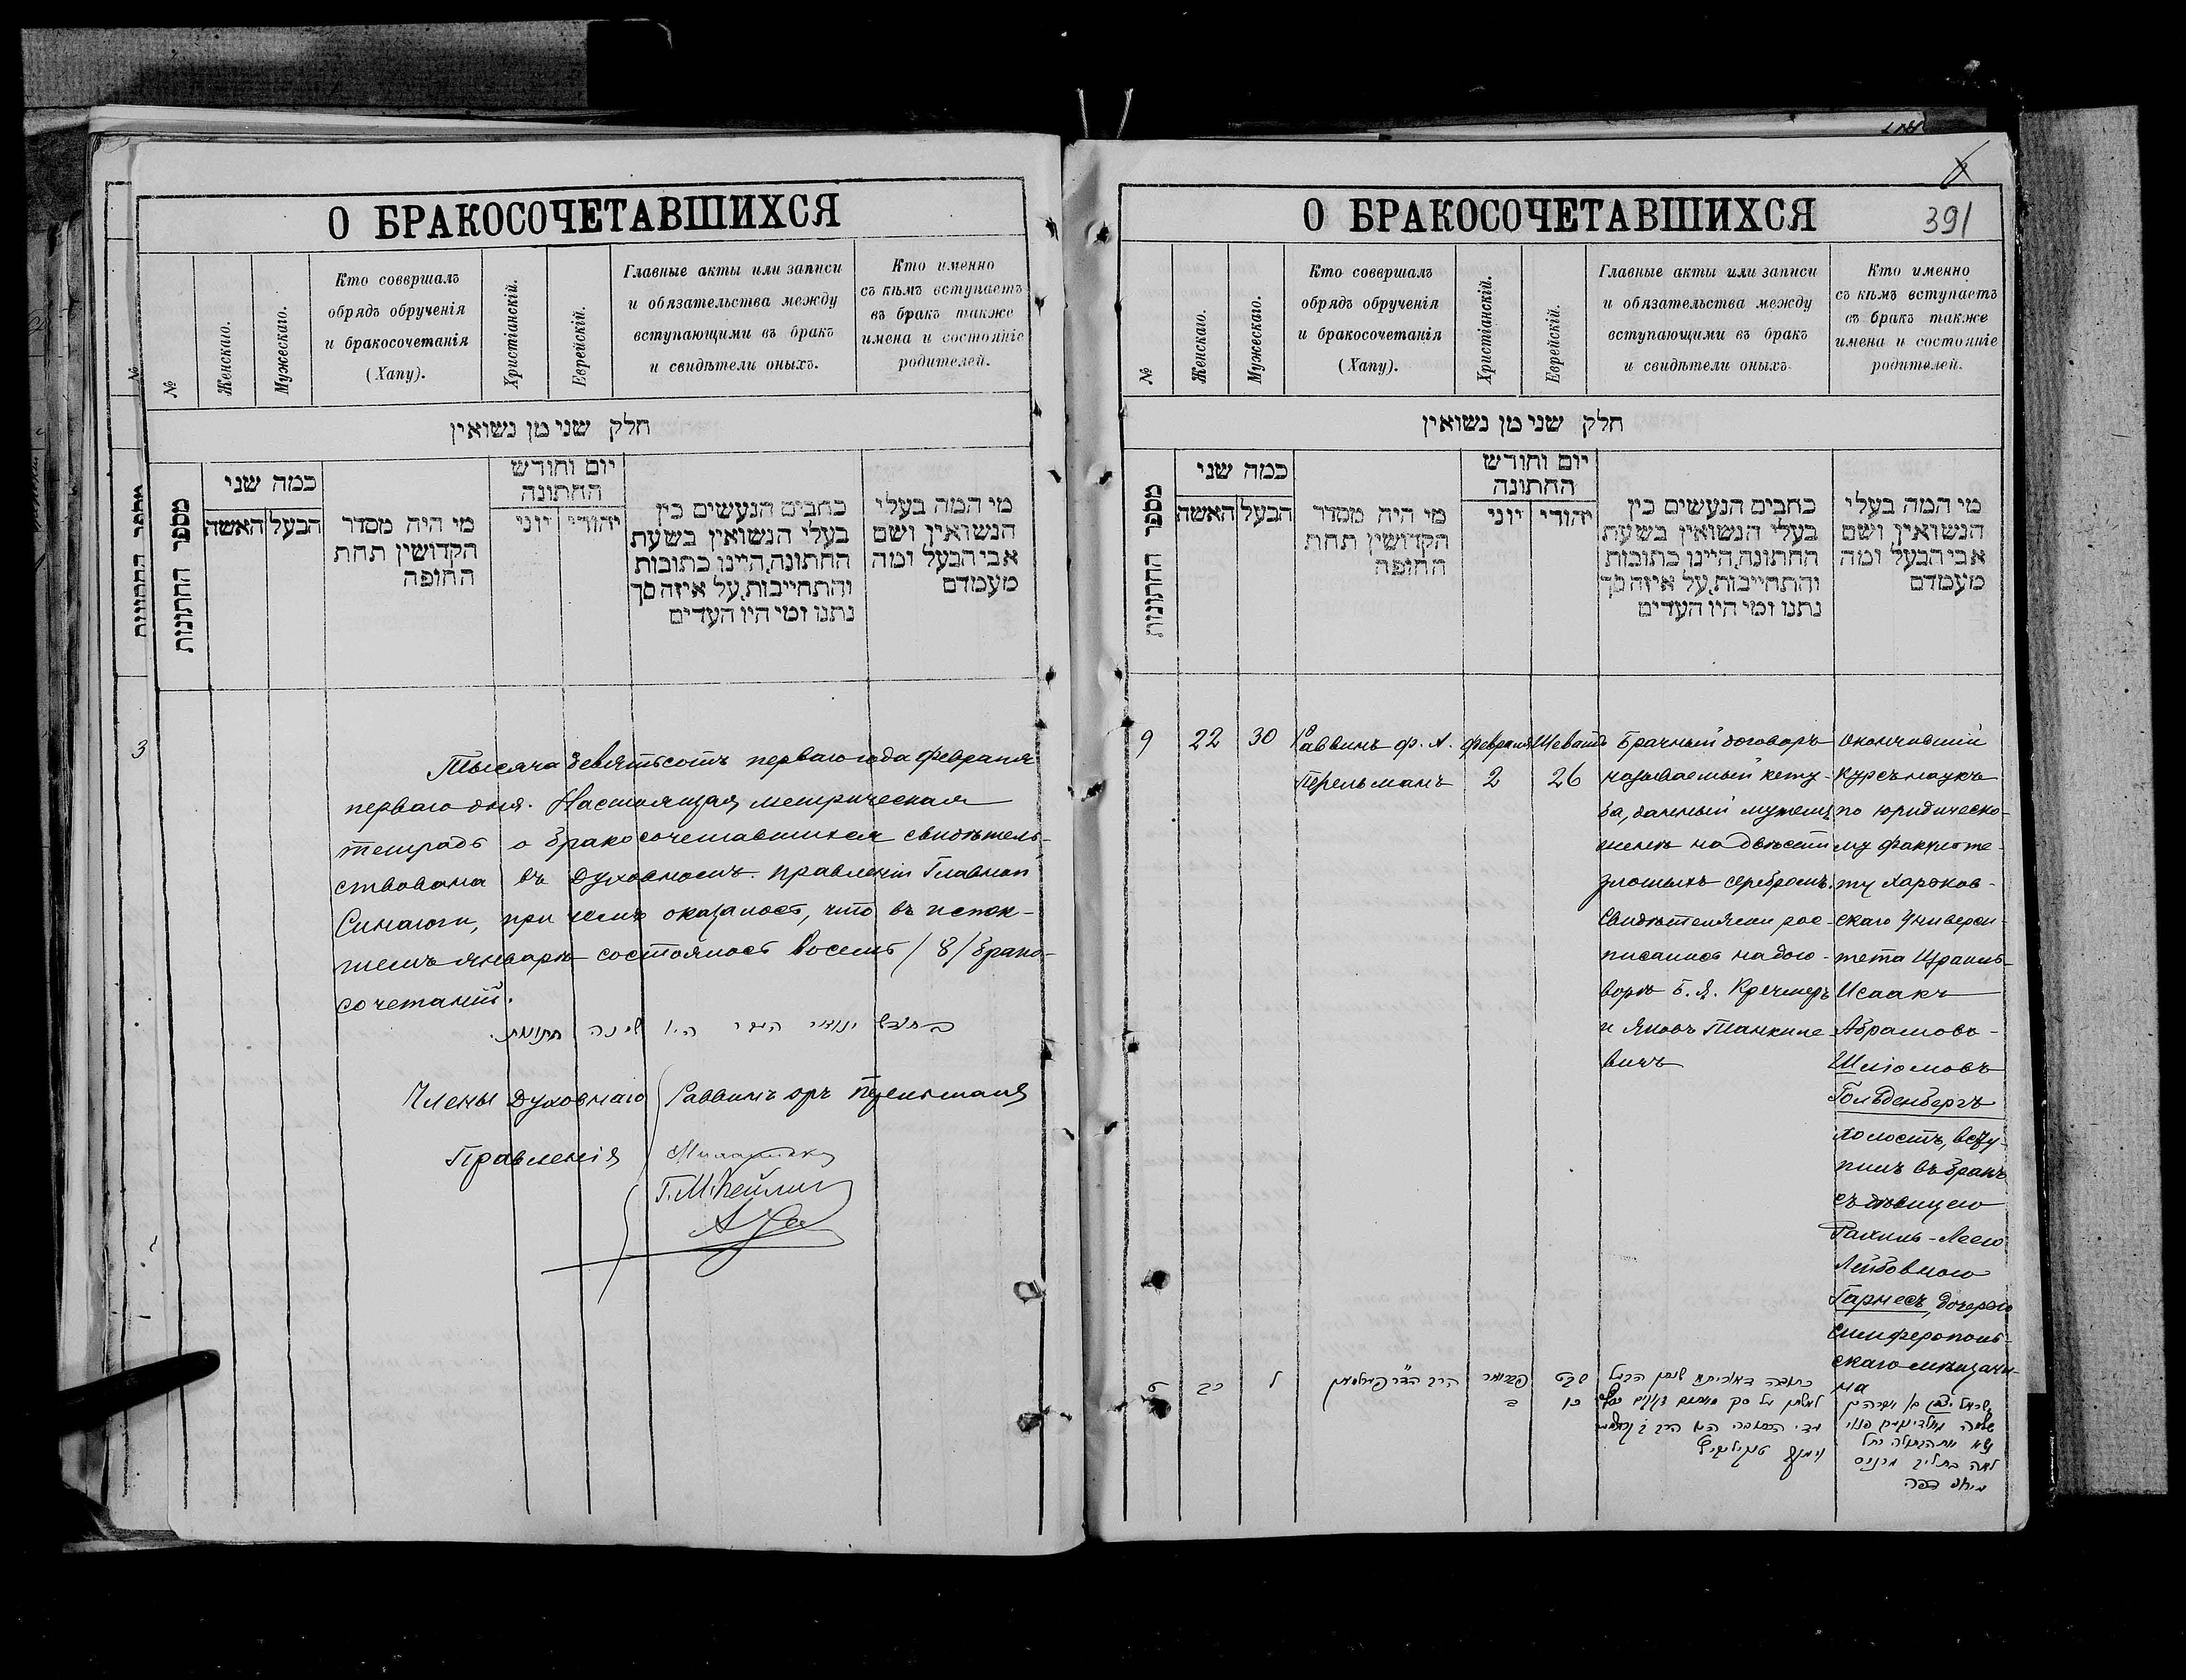 О БРАКОСОЧЕТАВШИХСЯ
№
Женскаго.
Мужескаго.
Кто совершалъ
обрядъ обрученія
и бракосочетанія
(Хапу).
Христіанскій.
Еврейскій.
Главные акты или записи
и обязательства между
вступающими въ бракъ
и свидѣтели оныхъ.
Кто именно
съ кѣмъ вступаетъ
въ бракъ также
имена и состояніе
родителей.
חלק שני מן נשואין
מספר החתונות
כמה שני
האשה
הבעל
מי היה מסדר
הקדושין תחת
החופה
יום וחודש
החתונה
יוני
יהודי
כתבים הנעשים בין
בעלי הנשואין בשעת
החתונה, היינו כתובות
והתחייבות, על איזה סך
נתנו ומי היו העדים
מי המה בעלי
הנשואין, ושם
אבי הבעל ומה
מעמדם
3
Тысяча девятьсотъ перваго года февраля
перваго дня. Настоящая метрическая
тетрадь о бракосочетавшихся свидѣтель-
ствована въ Духовномъ правленіи Главной
Синагоги, при чемъ оказалось, что въ истек-
шемъ январѣ состоялось восемь /8/ брако-
сочетаній.
Члены Духовнаго
Правленія
Раввинъ
О БРАКОСОЧЕТАВШИХСЯ
391
№
Женскаго.
Мужескаго.
Кто совершалъ
обрядъ обрученія
и бракосочетанія
(Хапу).
Христіанскій.
Еврейскій.
Главные акты или записи
и обязательства между
вступающими въ бракъ
и свидѣтели оныхъ.
Кто именно
съ кѣмъ вступаетъ
въ бракъ также
имена и состояніе
родителей.
חלק שני מן נשואין
מספר החתונות
כמה שני
האשה
הבעל
מי היה מסדר
הקדושין תחת
החופה
יום וחודש
החתונה
יוני
יהודי
כתבים הנעשים בין
בעלי הנשואין בשעת
החתונה, היינו כתובות
והתחייבות, על איזה סך
נתנו ומי היו העדים
מי המה בעלי
הנשואין, ושם
אבי הבעל ומה
מעמדם
9
22
30
Раввинъ Ф. А.
Перельманъ
Февраля
2
Шеватъ
26
Брачный договоръ
называемый кету-
ба, данный мужемъ
женѣ на двѣсти
злотыхъ серебромъ.
Свидѣтелями рос-
писались на дого-
ворѣ Б. Я. Кречмеръ
и Яковъ Танкиле-
вичъ
Окончившій
курсъ наукъ
по юридическо-
му факульте-
ту Харьков-
скаго Универси-
тета Израиль-
Исаакъ
Абрамовъ-
Шліомовъ
Гольденбергъ
холостъ, всту-
пилъ въ бракъ
съ дѣвицею
Рахиль-Леею
Лейбовною
Гарнесъ, дочерью
Симферополь-
скаго мѣщани-
на
ט
כב
ל
ב
שבט
כו